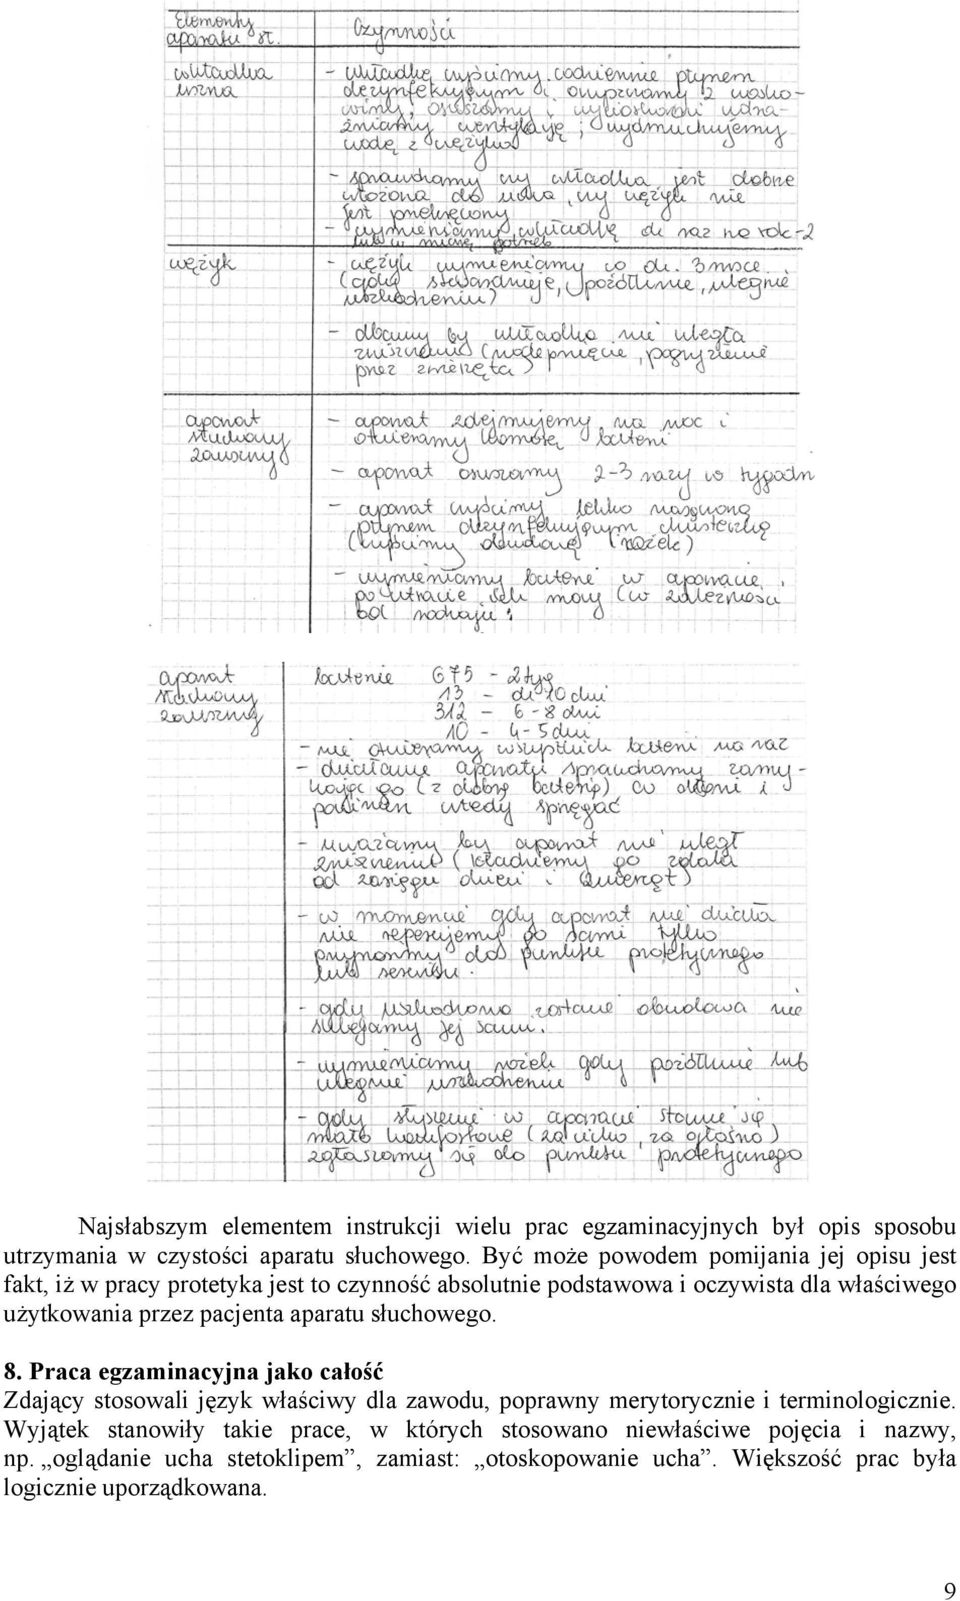 Elementy
aparatu sł.
Czynności
wkładka
uszna
- wkładkę czyścimy codziennie płynem
dezynfekującym i oczyszczamy z wosko-
winy, osuszamy i wyciorkami udra-
żniamy wentylację; wydmuchujemy
wodę z wężyka
- sprawdzamy czy wkładka jest dobrze
włożona do ucha, czy wężyk nie
jest przekręcony
- wymieniamy wkładkę ok raz na rok-2
lub w miarę potrzeb
wężyk
- wężyk wymieniamy co ok. 3 msce
(gdy stwardnieje, pożółknie, ulegnie
uszkodzeniu)
- dbamy by wkładka nie uległa
zniszczeniu (nadepnięcie, pogryzienie
przez zwierzęta)
aparat
słuchowy
zauszny
- aparat zdejmujemy na noc i
otwieramy komorę baterii
- aparat osuszamy 2-3 razy w tygodn
- aparat czyścimy lekko nasączoną
płynem dezynfekującym chusteczką
(czyścimy obudowę (rożek)
- wymieniamy baterie w aparacie
po utracie ich mocy (w zależności
od rodzaju:
aparat
słuchowy
zauszny
baterie 675 - 2 tyg
13 - ok 10 dni
312 - 6-8 dni
10 - 4-5 dni
- nie otwieramy wszystkich baterii na raz
- działanie aparatu sprawdzamy zamy-
kając go (z dobrą baterią) w dłoni i
powinien wtedy sprzęgać
- uważamy by aparat nie uległ
zniszczeniu (kładziemy go z dala
od zasięgu dzieci i zwierząt)
- w momencie gdy aparat nie działa
nie reperujemy go sami tylko
przynosimy do punktu protetycznego
lub serwisu.
- gdy uszkodzona zostanie obudowa nie
sklejamy jej sami.
- wymieniamy rożek gdy pożółknie lub
ulegnie uszkodzeniu
- gdy słyszenie w aparacie stanie się
mało komfortowe (za cicho, za głośno)
zgłaszamy się do punktu protetycznego
Najsłabszym elementem instrukcji wielu prac egzaminacyjnych był opis sposobu
utrzymania w czystości aparatu słuchowego. Być może powodem pomijania jej opisu jest
fakt, iż w pracy protetyka jest to czynność absolutnie podstawowa i oczywista dla właściwego
użytkowania przez pacjenta aparatu słuchowego.
8. Praca egzaminacyjna jako całość
Zdający stosowali język właściwy dla zawodu, poprawny merytorycznie i terminologicznie.
Wyjątek stanowiły takie prace, w których stosowano niewłaściwe pojęcia i nazwy,
np. „oglądanie ucha stetoklipem”, zamiast: „otoskopowanie ucha”. Większość prac była
logicznie uporządkowana.
9